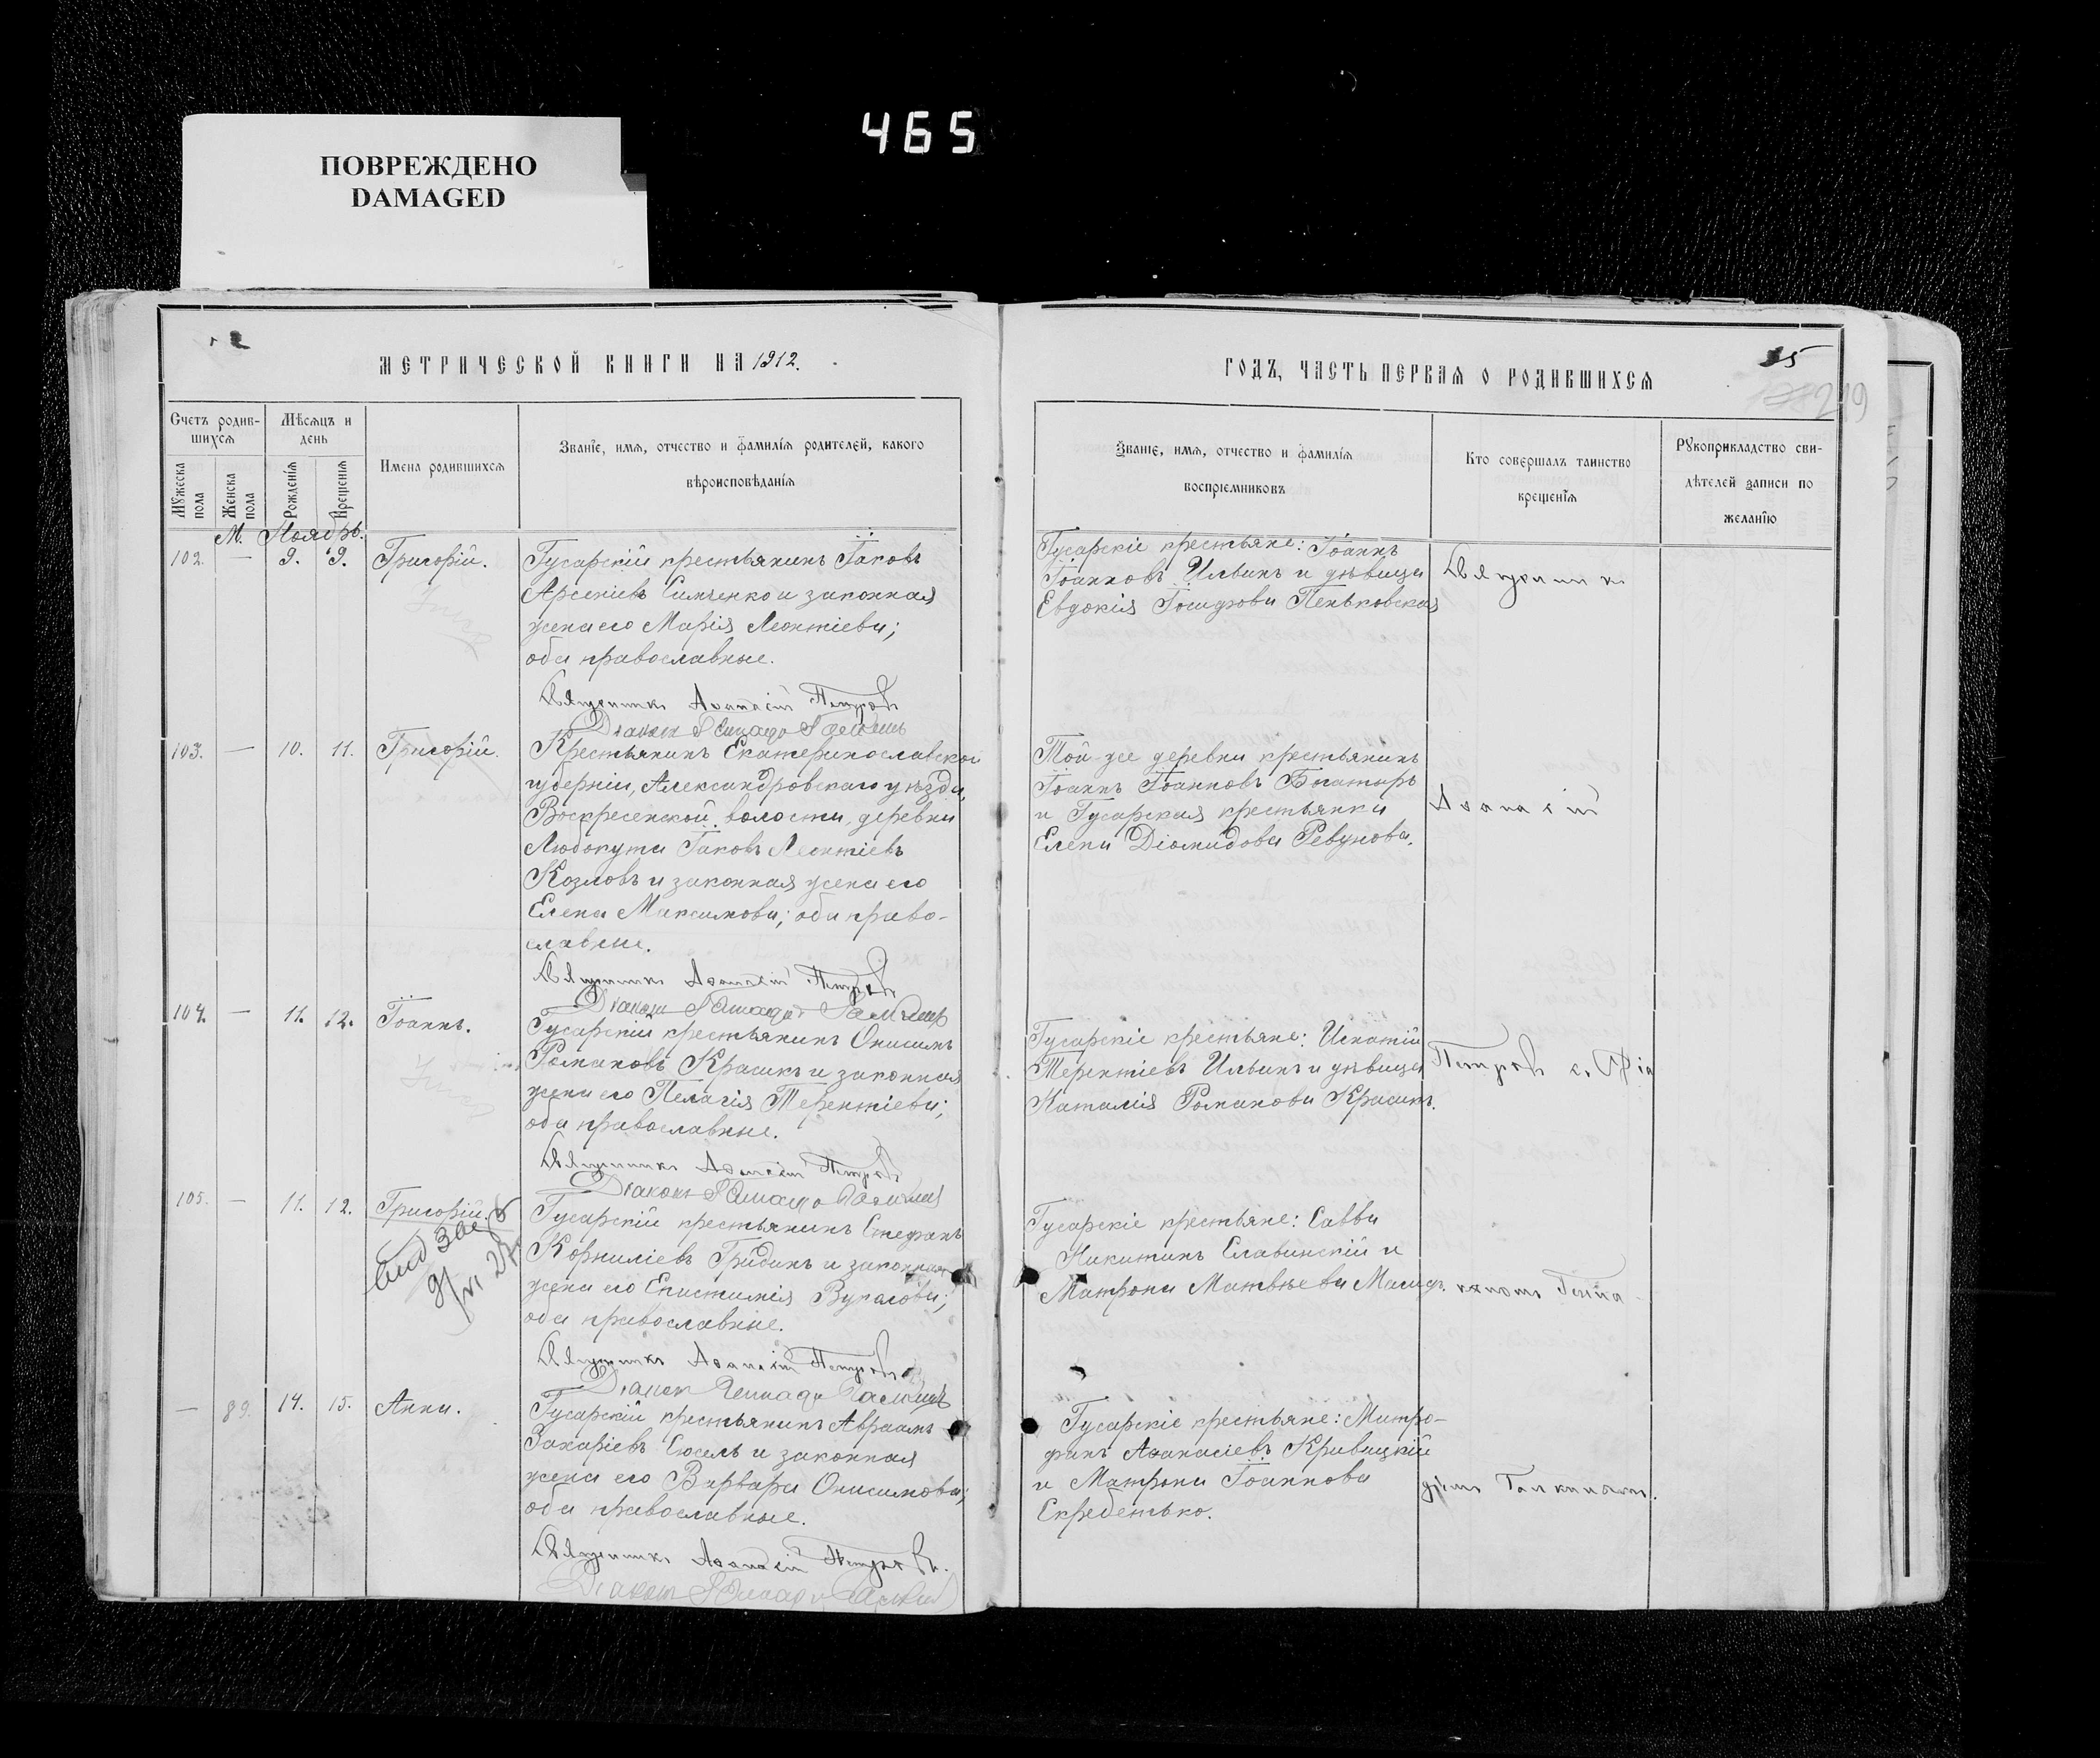 465
ПОВРЕЖДЕНО
DAMAGED
МЕТРИЧЕСКОЙ КНИГИ НА 1912.
Счетъ родив-
шихся
Мѣсяцъ и
день
Имена родившихся
Званіе, имя, отчество и фамилія родителей, какого
вѣроисповѣданія
Мужеска
пола
Женска
пола
Рожденія
Крещенія
М. Ноябрь.
102. — 9. 9. Григорій.
Гусарскій крестьянинъ Іаковъ
Арсеніевъ Симченко и законная
жена его Марія Леонтіева;
оба православные.
Священникъ Аѳанасій Петровъ
Діаконъ
103. — 10. 11. Григорій.
Крестьянинъ Екатеринославской
губерніи, Александровскаго уѣзда,
Воскресенской волости, деревни
Любокута Іаковъ Леонтіевъ
Козловъ и законная жена его
Елена Максимова; оба право-
славные.
Священникъ Аѳанасій Петровъ
Діаконъ
104. — 11. 12. Іоаннъ.
Гусарскій крестьянинъ Онисимъ
Романовъ Красикъ и законная
жена его Пелагія Терентіева;
оба православные.
Священникъ Аѳанасій Петровъ
Діаконъ
105. — 11. 12. Григорій.
Гусарскій крестьянинъ Стефанъ
Корниліевъ Гридинъ и законная
жена его Епистимія
оба православные.
Священникъ Аѳанасій Петровъ
Діаконъ
— 89. 14. 15. Анна.
Гусарскій крестьянинъ Авраамъ
Захаріевъ и законная
жена его Варвара Онисимова;
оба православные.
Священникъ Аѳанасій Петровъ.
Діаконъ
ГОДЪ, ЧАСТЬ ПЕРВАЯ О РОДИВШИХСЯ
219
Званіе, имя, отчество и фамилія
воспріемниковъ
Кто совершалъ таинство
крещенія
Рукоприкладство сви-
дѣтелей записи по
желанію
Гусарскіе крестьяне: Іоаннъ
Іоанновъ Ильинъ и дѣвица
Евдокія Іосифова Пеньковская
Священникъ
Той-же деревни крестьянинъ
Іоаннъ Іоанновъ Богатырь
и Гусарская крестьянка
Елена Діомидова Ревунова.
Аѳанасій
Гусарскіе крестьяне: Игнатій
Терентіевъ Ильинъ и дѣвица
Наталія Романова Красикъ.
Петровъ с. Діа
Гусарскіе крестьяне: Савва
Никитинъ Славинскій и
Матрона Матвѣева
кономъ Генна-
Гусарскіе крестьяне: Митро-
фанъ Аѳанасіевъ Кривицкій
и Матрона Іоаннова
Скребетько.
діемъ Галкинымъ.